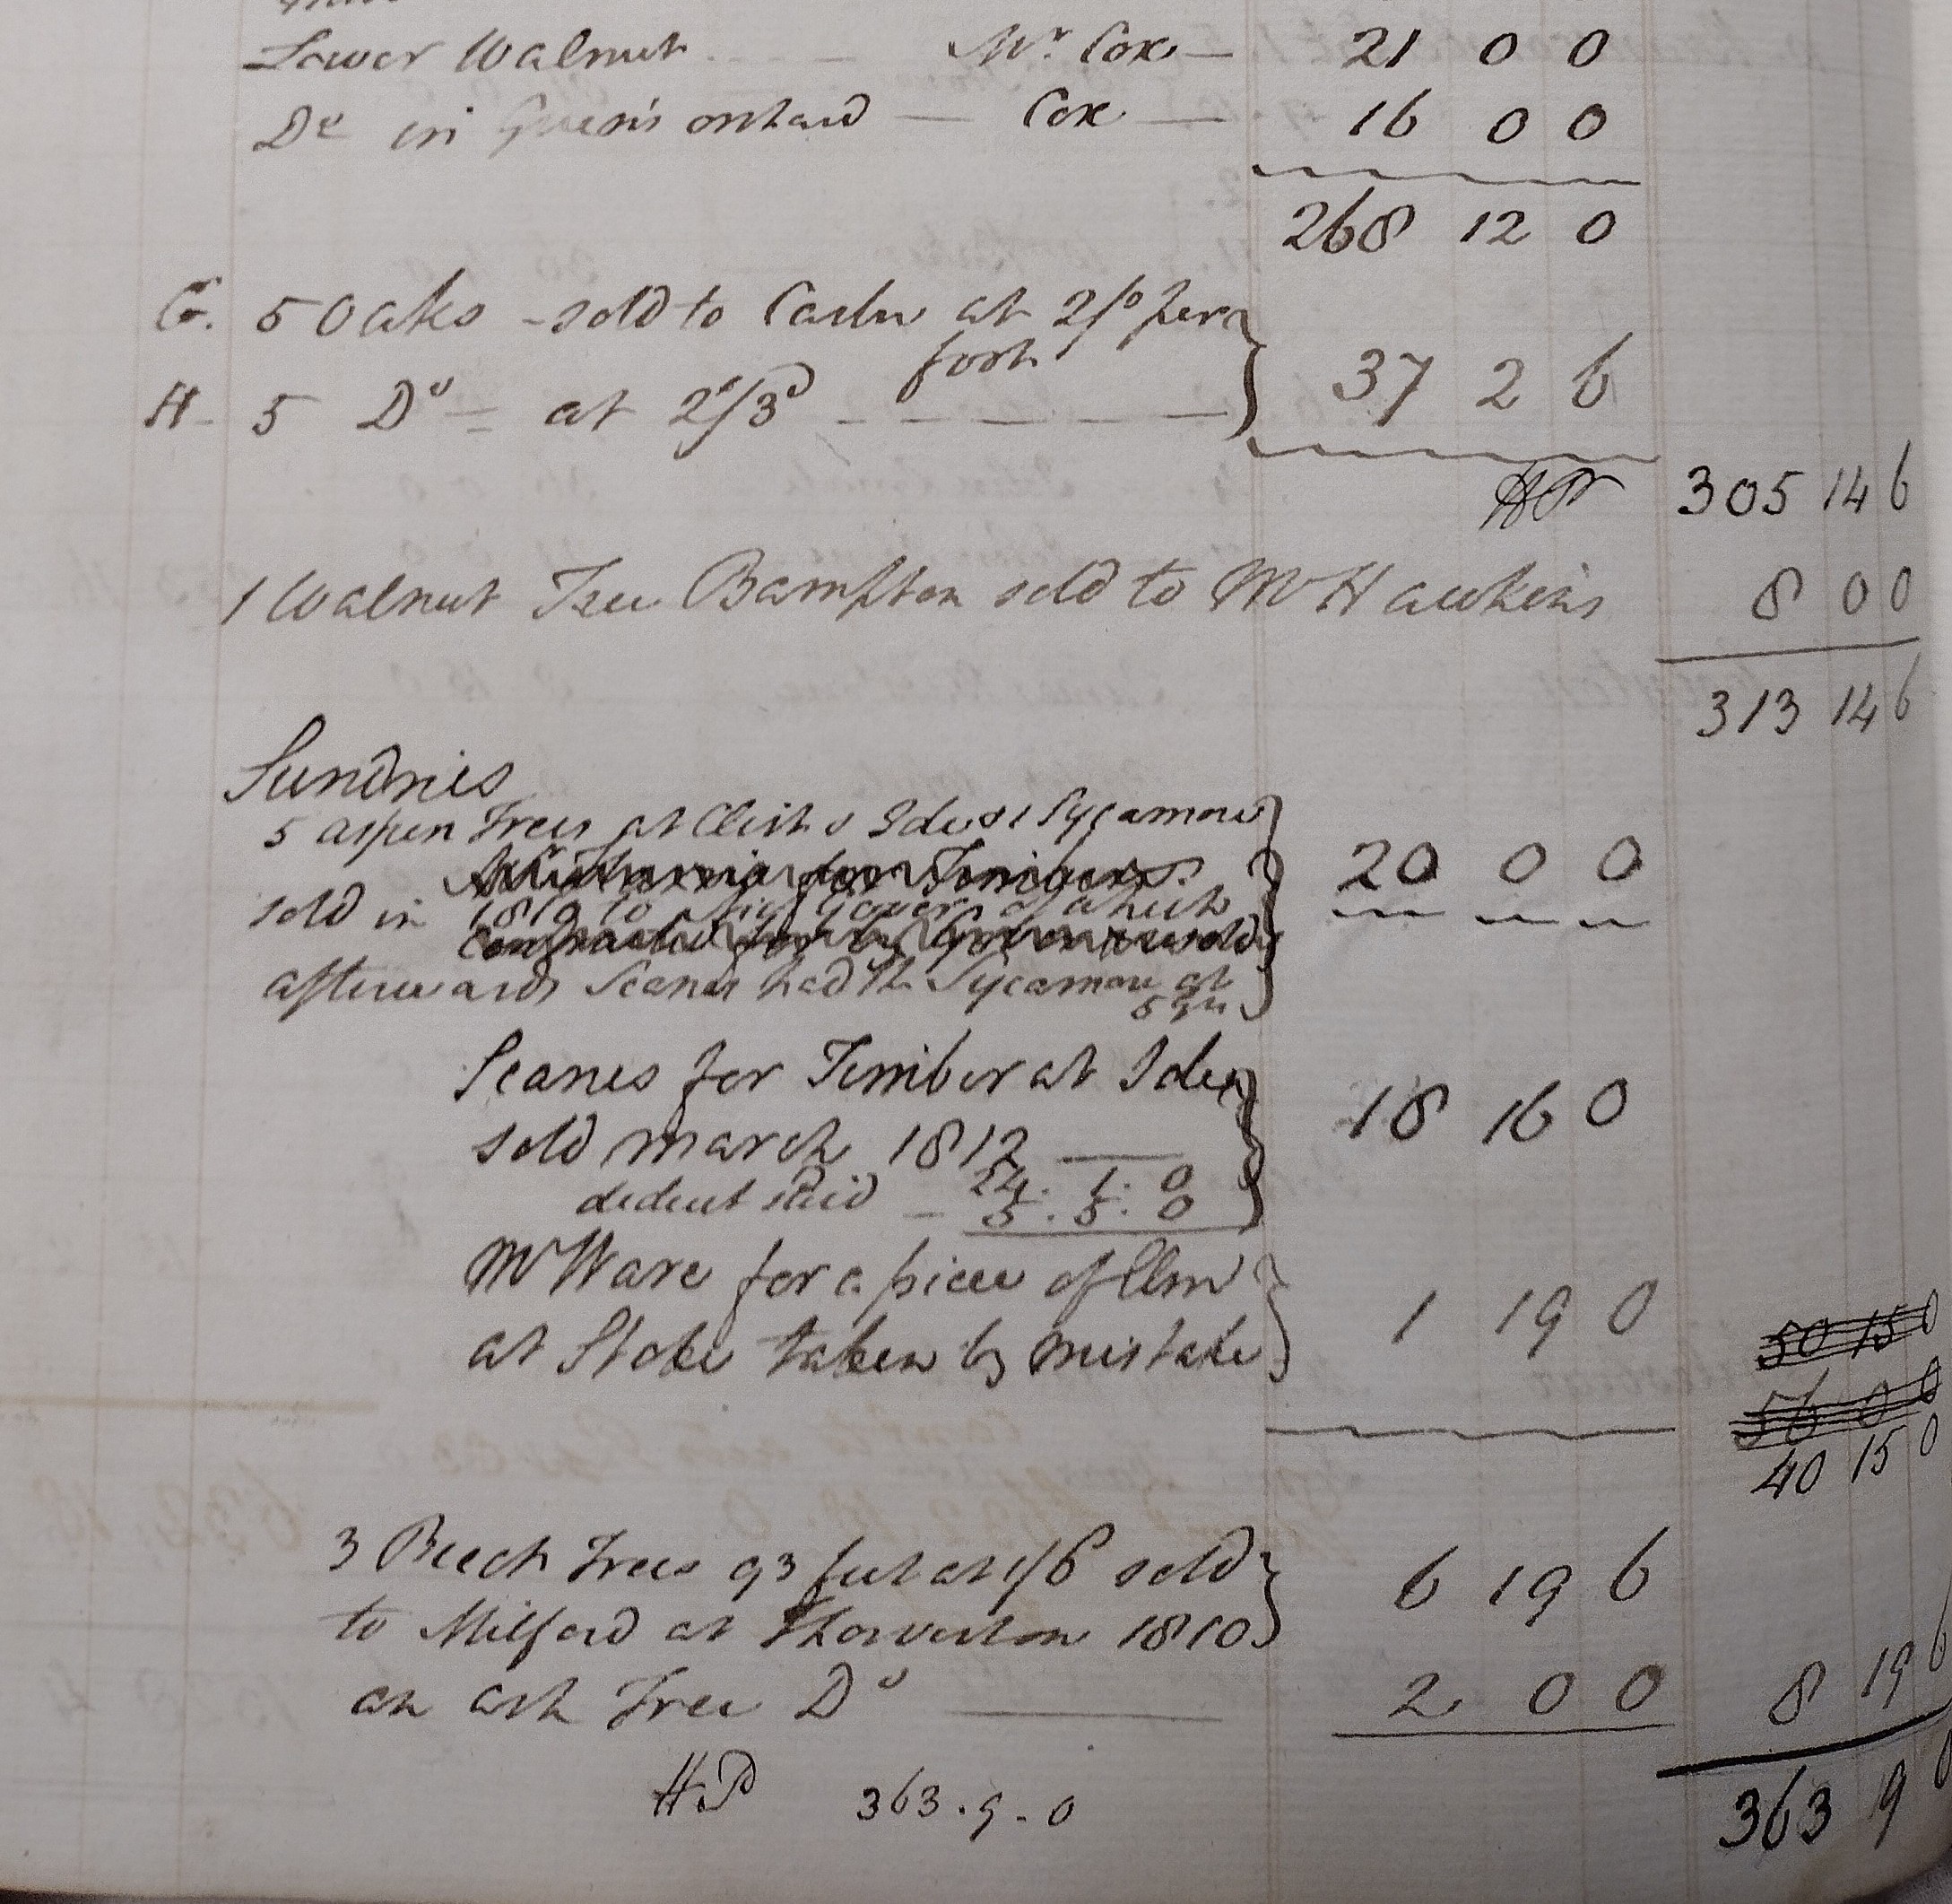 Lower Walnut Mr. Cox 21 0 0
Do in orchard Cox 16 0 0
268 12 0
G. 5 Oaks sold to at 2/0 per
foot
H 5 Do at 2s/3d 37 2 6
HP 305 14 6
1 Walnut Tree Bampton sold to Mr Hawkins 8 0 0
313 14 6
Sundries
5 aspen Trees at Clist & Ide & 1 Sycamore 20 0 0
sold in 1810 to of which
afterwards Scanes had the Sycamore at
5 gs
Scanes for Timber at Ide
sold march 1812 18 16 0
24. 1. 0
deduct paid 5. 5. 0
Mr Ware for a piece of Elm
at Stoke taken by mistake 1 19 0
50 15 0
56 0 0
40 15 0
3 Beech Trees 93 feet at 1/6 sold
to Milford at Thorverton 1810 6 19 6
an ash Tree Do 2 0 0 8 19 6
HP 363 . 9 . 0 363 9 0